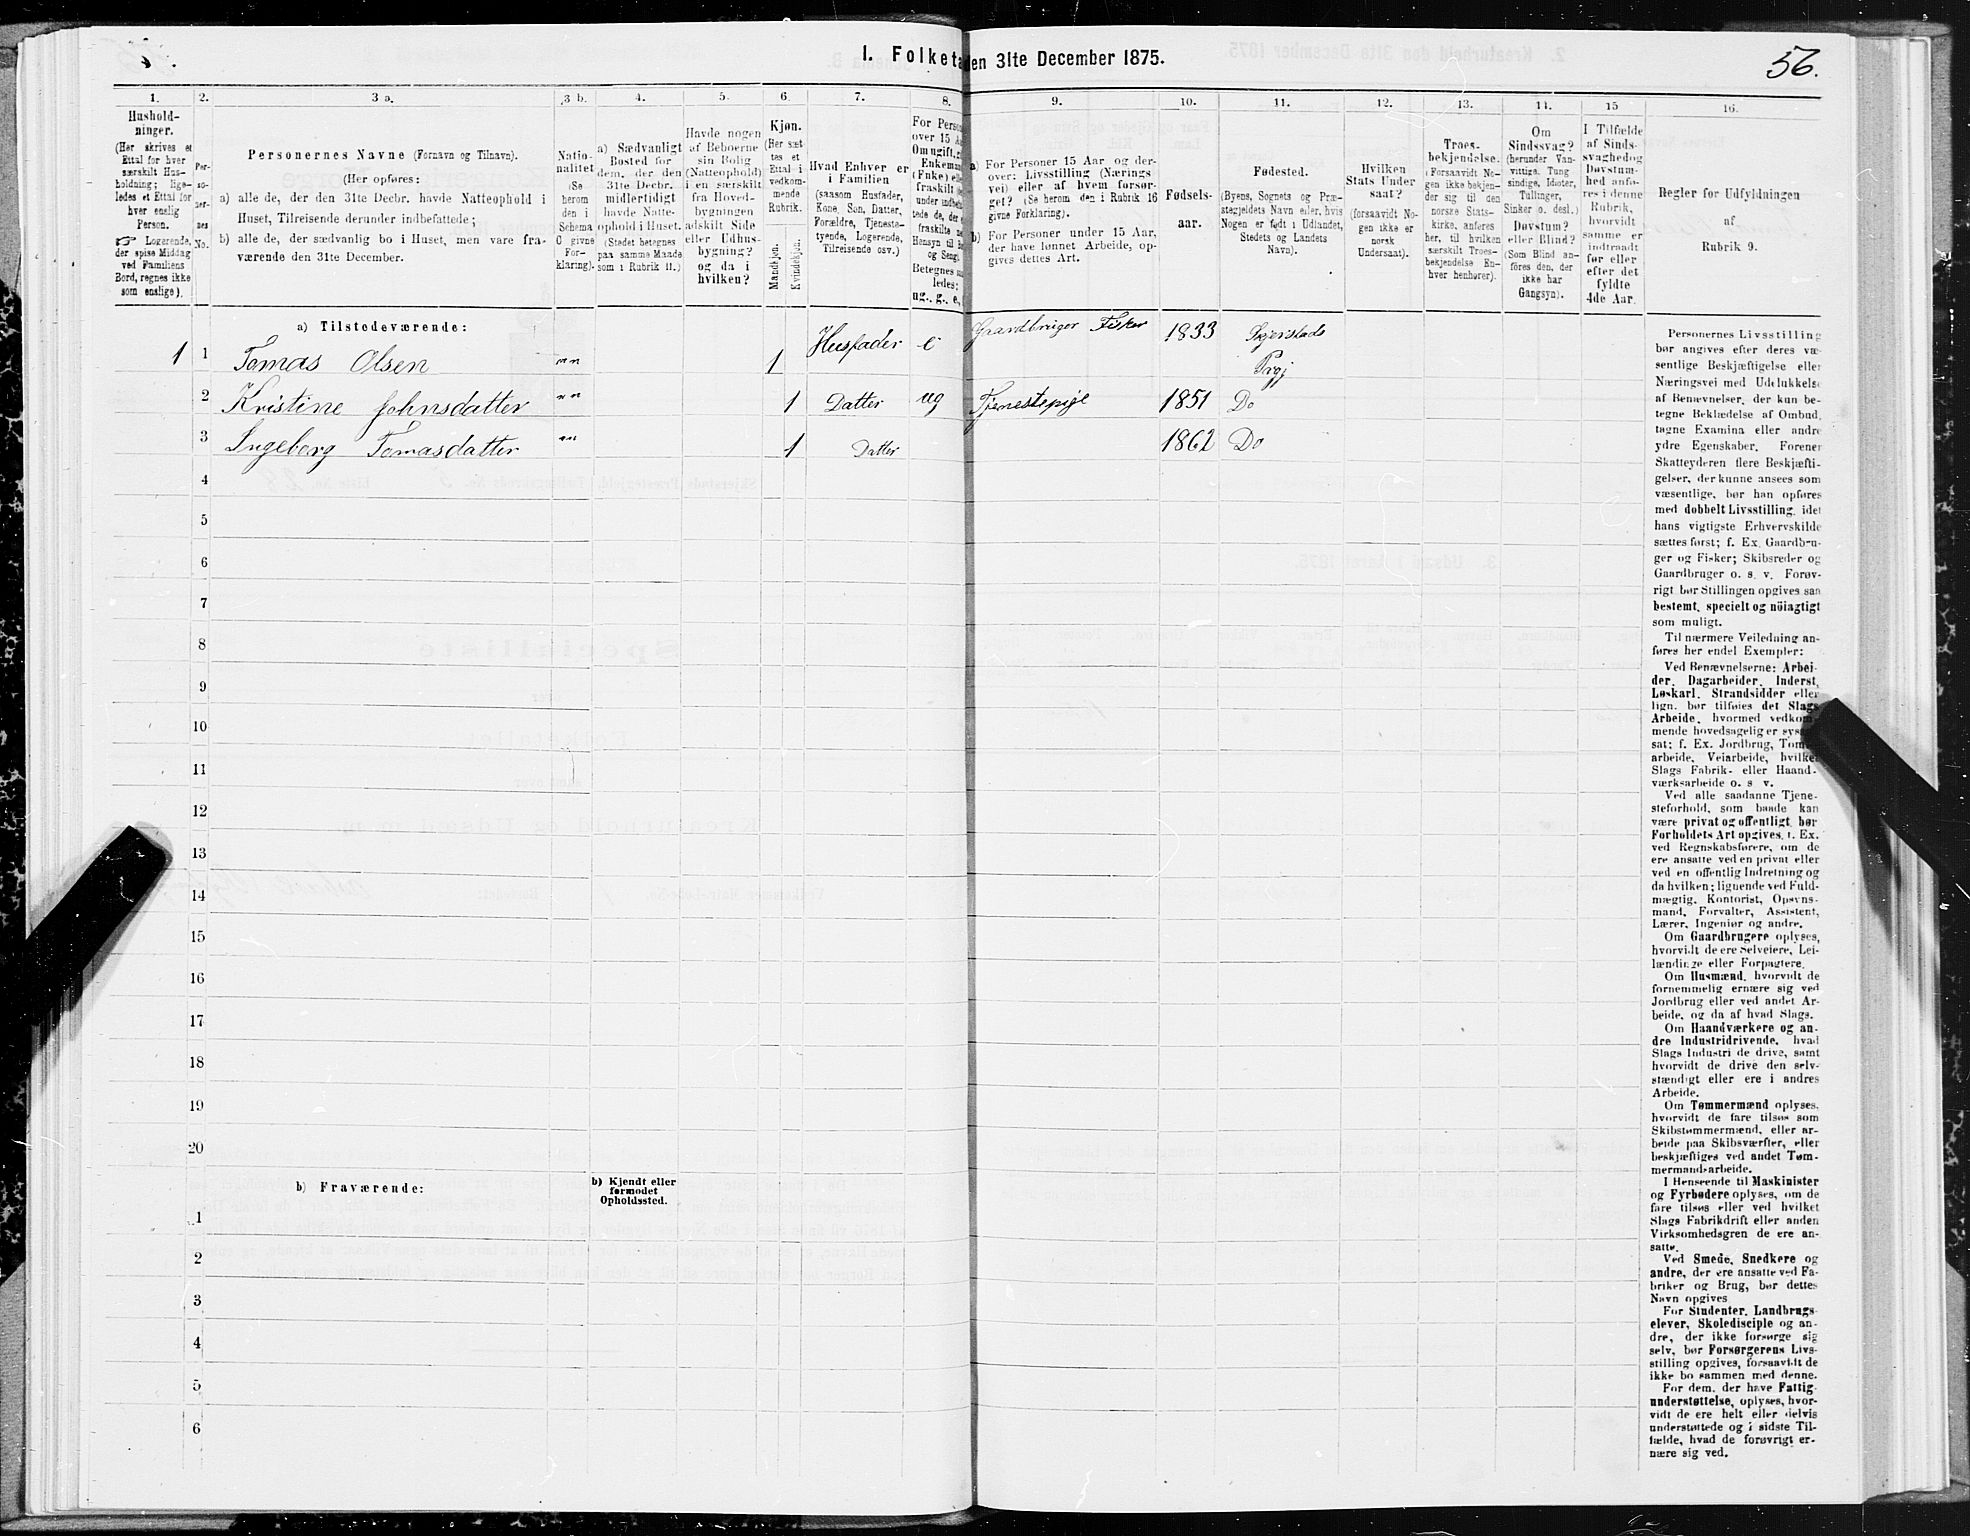 I. Folketa en 31te December 1875.
56.
1.
2.
3 a.
3 b.
4.
5.
6.
7.
8.
9.
10.
11.
12.
13.
14.
15
16.
Hushold-
ninger.
(Her skrives et
Ettal for hver
særskilt Hus-
holdning; lige-
ledes et Ettal for
hver enslig
Person.
☞ Logerende,
der spise Middag
ved Familiens
Bord, regnes ikke
som enslige).
Per-
so-
ner-
nes
No.
Personernes Navne (Fornavn og Tilnavn).
(Her opføres:
a) alle de, der den 31te Decbr. havde Natteophold i
Huset, Tilreisende derunder indbefattede;
b) alle de, der sædvanlig bo i Huset, men vare fra-
værende den 31te December.
Natio-
nalitet
(Se
herom
den i
Schema
O givne
For-
klaring).
a) Sædvanligt
Bosted for
dem, der den
31te Decbr.
midlertidigt
havde Natte-
ophold i Huset.
(Stedet betegnes
paa samme Maade
som i Rubrik 11.)
Havde nogen
af Beboerne
sin Bolig
(Natteophold)
i en særskilt
fra Hoved-
bygningen
adskilt Side
eller Udhus-
bygning?
og da i
hvilken?
Kjøn.
(Her sæt-
tes et
Ettal i
vedkom-
mende
Rubrik.
Mandkjøn.
Kvindekjøn.
Hvad Enhver er
i Familien
(saasom Husfader,
Kone, Søn, Datter,
Forældre, Tjeneste-
tyende, Logerende,
Tilreisende osv.)
For Perso
over 15 A
Om ugift,
Enkeman
(Enke) el
fraskilt
under indbe
tede de, der
fraskilte
Hensyn til B
og Seng.
Betegnes s
ledes:
ug., g., e,
a) For Personer 15 Aar og der-
over: Livsstilling (Nærings
vei) eller af hvem forsør-
get? (Se herom den i Rubrik 16
givne Forklaring).
b) For Personer under 15 Aar,
der have lønnet Arbeide, op-
gives dettes Art.
Fødsels-
aar.
Fødested.
(Byens, Sognets og Præ-
stegjeldets Navn eller, hvis
Nogen er født i Udlandet,
Stedets og Landets
Navn).
Hvilken
Stats Under
saat?
(forsaavidt No-
gen ikke er
norsk
Undersaat).
Troes-
bekjendelse.
(Forsaavidt No-
gen ikke bekjen-
der sig til den
norske Stats-
kirke, anføres
her, til hvilken
særskilt Troes-
bekjendelse En-
hver henhører).
Om
Sindssvag?
(herunder Van-
vittige, Tung
sindige, Idioter,
Tullinger,
Sinker o. desl.)
Døvstum?
eller Blind?
(Som Blind an-
føres den, der
ikke har
Gangsyn).
I Tilfælde
af Sinds-
svaghedog
Døvstum-
hed anfø-
res i denne
Rubrik,
hvorvidt
samme er
indtraadt
før eller
efter det
fyldte
4de Aar.
Regler for Udfyldningen
af
Rubrik 9.
a) Tilstedeværende:
1 1 Tomas Olsen "" 1 Husfader e Gaardbruger Fisker 1833 Skjerstads
Prgj
2 Kristine Johnsdatter "" 1 Datter ug Tjenestepige 1851 Do
3 Ingeborg Tomasdatter "" 1 Datter 1862 Do
4
5
6
7
8
9
10
11
12
13
14
15
16
17
18
19
20
b) Fraværende:
b) Kjendt eller
formodet
Opholdssted.
1
2
3
4
5
6
Personernes Livsstilling
bør angives efter deres væ-
sentlige Beskjæftigelse eller
Næringsvei med Udelukkelse
af Benævnelser, der kun be-
tegne Beklædelse af Ombud,
tagne Examina eller andre
ydre Egenskaber. Forener
Skatteyderen flere Beskjæfti-
gelser, der kunne ansees som
væsentlige, bør han opføres
med dobbelt Livsstilling, idet
hans vigtigste Erhvervskilde
sættes først; f. Ex. Gaardbru-
ger og Fisker; Skibsreder og
Gaardbruger o. s. v. Forøv-
rigt bør Stillingen opgives saa
bestemt, specielt og nöiagtigt
som muligt.
Til nærmere Veiledning an-
føres her endel Exempler:
Ved Benævnelserne: Arbei-
der, Dagarbeider, Inderst,
Løskarl, Strandsidder eller
lign. bør tilføies det Slags
Arbeide, hvormed vedkom-
mende hovedsagelig er syssel-
sat; f. Ex. Jordbrug, Tom
arbeide, Veiarbeide, hvilket
Slags Fabrik- eller Haand-
værksarbeide o. s v.
Ved alle saadanne Tjene-
steforhold, som baade kan
være privat og offentligt, bør
Forholdets Art opgives, f. Ex.
ved Regnskabsførere, om de
ere ansatte ved en privat eller
ved en offentlig Indretning og
da hvilken; lignende ved Fuld-
mægtig, Kontorist, Opsyns-
mand, Forvalter, Assistent,
Lærer, Ingeniør og andre.
Om Gaardbrugere oplyses,
hvorvidt de ere Selveiere, Lei-
lændinge eller Forpagtere.
Om Husmænd, hvorvidt de
fornemmelig ernære sig ved
Jordbrug eller ved andet Ar-
beide, og da af hvad Slags.
Om Haandværkere og an-
dre Industridrivende, hvad
Slags Industri de drive, samt
hvorvidt de drive den selv-
stændigt eller ere i andres
Arbeide.
Om Tømmermænd oplyses,
hvorvidt de fare tilsøs som
Skibstømmermænd, eller ar-
beide paa Skibsværfter, eller
beskjæftiges ved andet Tøm-
mermandsarbeide.
I Henseende til Maskinister
og Fyrbødere oplyses, om de
fare tilsøs eller ved hvilket
Slags Fabrikdrift eller anden
Virksomhedsgren de ere an-
satte.
Ved Smede, Snedkere og
andre, der ere ansatte ved Fa-
briker og Brug, bør dettes
Navn opgives
For Studenter, Landbrugs-
elever, Skoledisciple og an-
dre, der ikke forsørge sig
selv, bør Forsørgerens Livs-
stilling opgives, forsaavidt de
ikke bo sammen med denne.
For dem, der have Fattig-
understøttelse, oplyses, hvor-
vidt de ere helt eller delvis
understøttede og i sidste Til-
fælde, hvad de forøvrigt er-
nære sig ved.